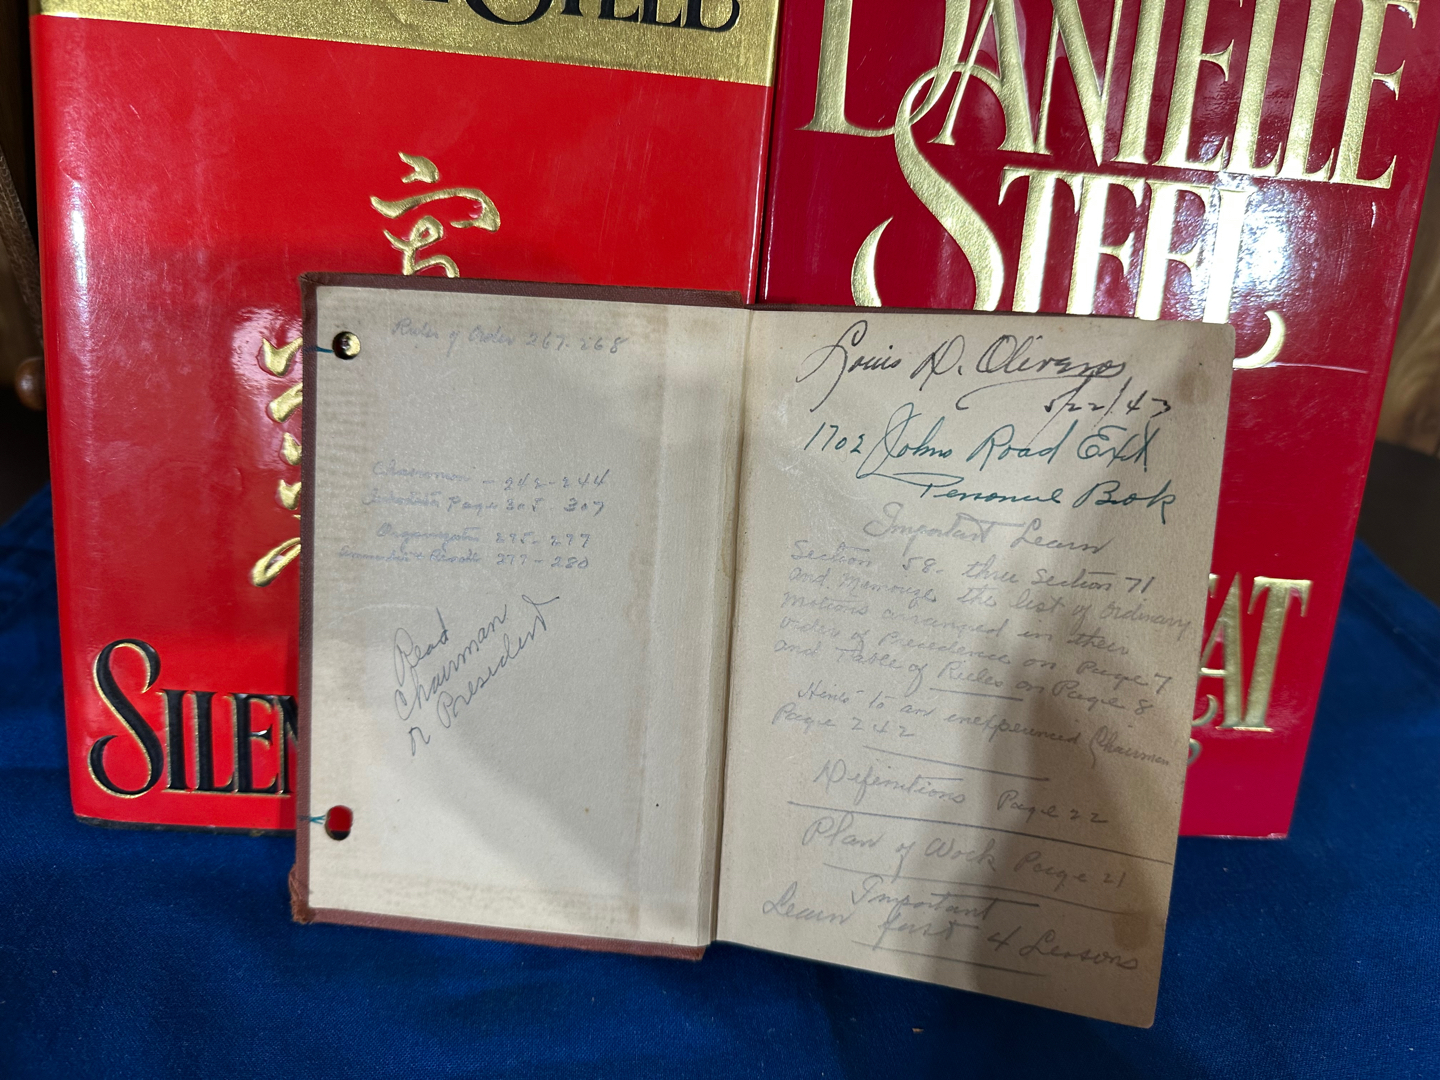 STEEL
DANIELLE
STEEL
SILEN
EAT
Rules of Order 267-268
Chairman - 242-244
Page 305 307
Organization 295-297
277-280
Read
Chairman
or President
Louis D. Oliveros
5/22/43
1702 Johns Road Ext
Personal Book
Important Learn
Section 58. thru Section 71
and Memorize the list of Ordinary
Motions arranged in their
Order of Precedence on Page 7
and Table of Rules on Page 8
Hints to an inexperienced Chairman
Page 242
Definitions Page 22
Plan of Work Page 21
Important
Learn first 4 Lessons